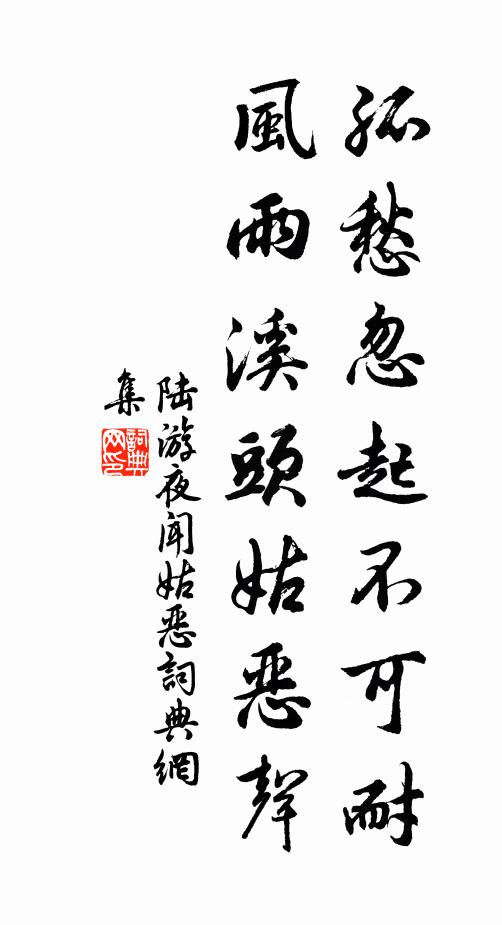 孤愁忽起不可耐
風雨溪頭姑惡聲
陆游夜闻姑惡詞典網
集
詞典网印